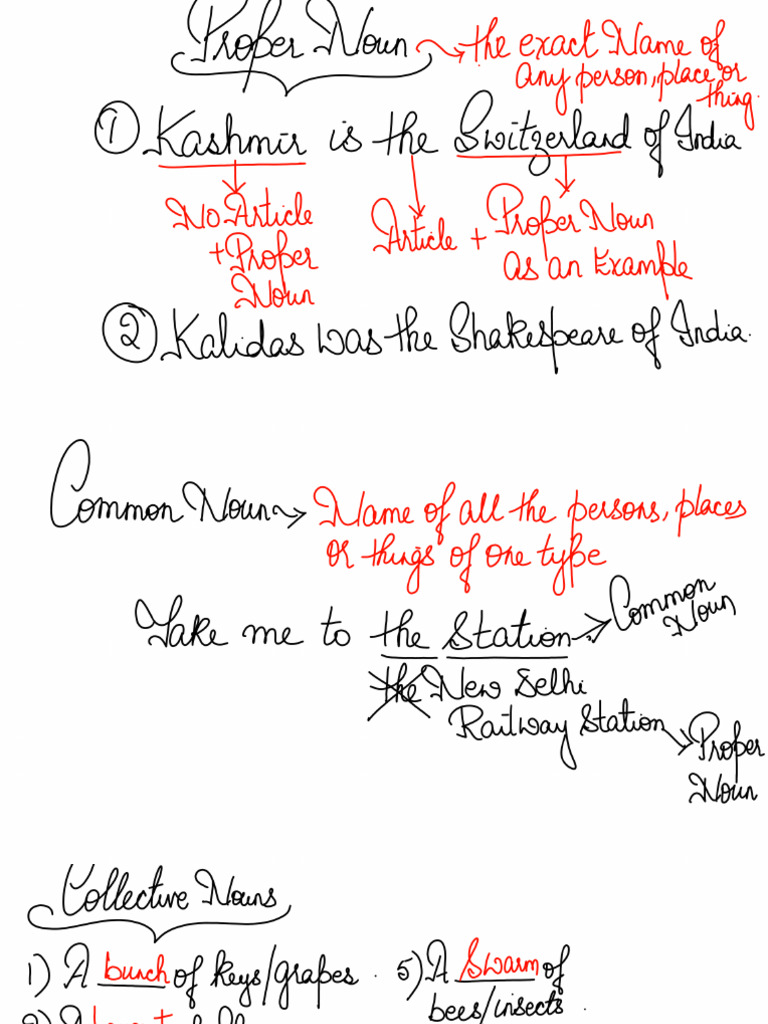 Proper Noun → the exact Name of
any person, place or
thing.
① Kashmir is the Switzerland of India
No Article
+ Proper
Noun
Article + Proper Noun
as an Example
② Kalidas was the Shakespeare of India.
Common Noun → Name of all the persons, places
or things of one type
Take me to the Station → Common
Noun
the New Delhi
Railway Station → Proper
Noun
Collective Nouns
1) A bunch of keys/grapes.
5) A Swarm of
bees/insects.